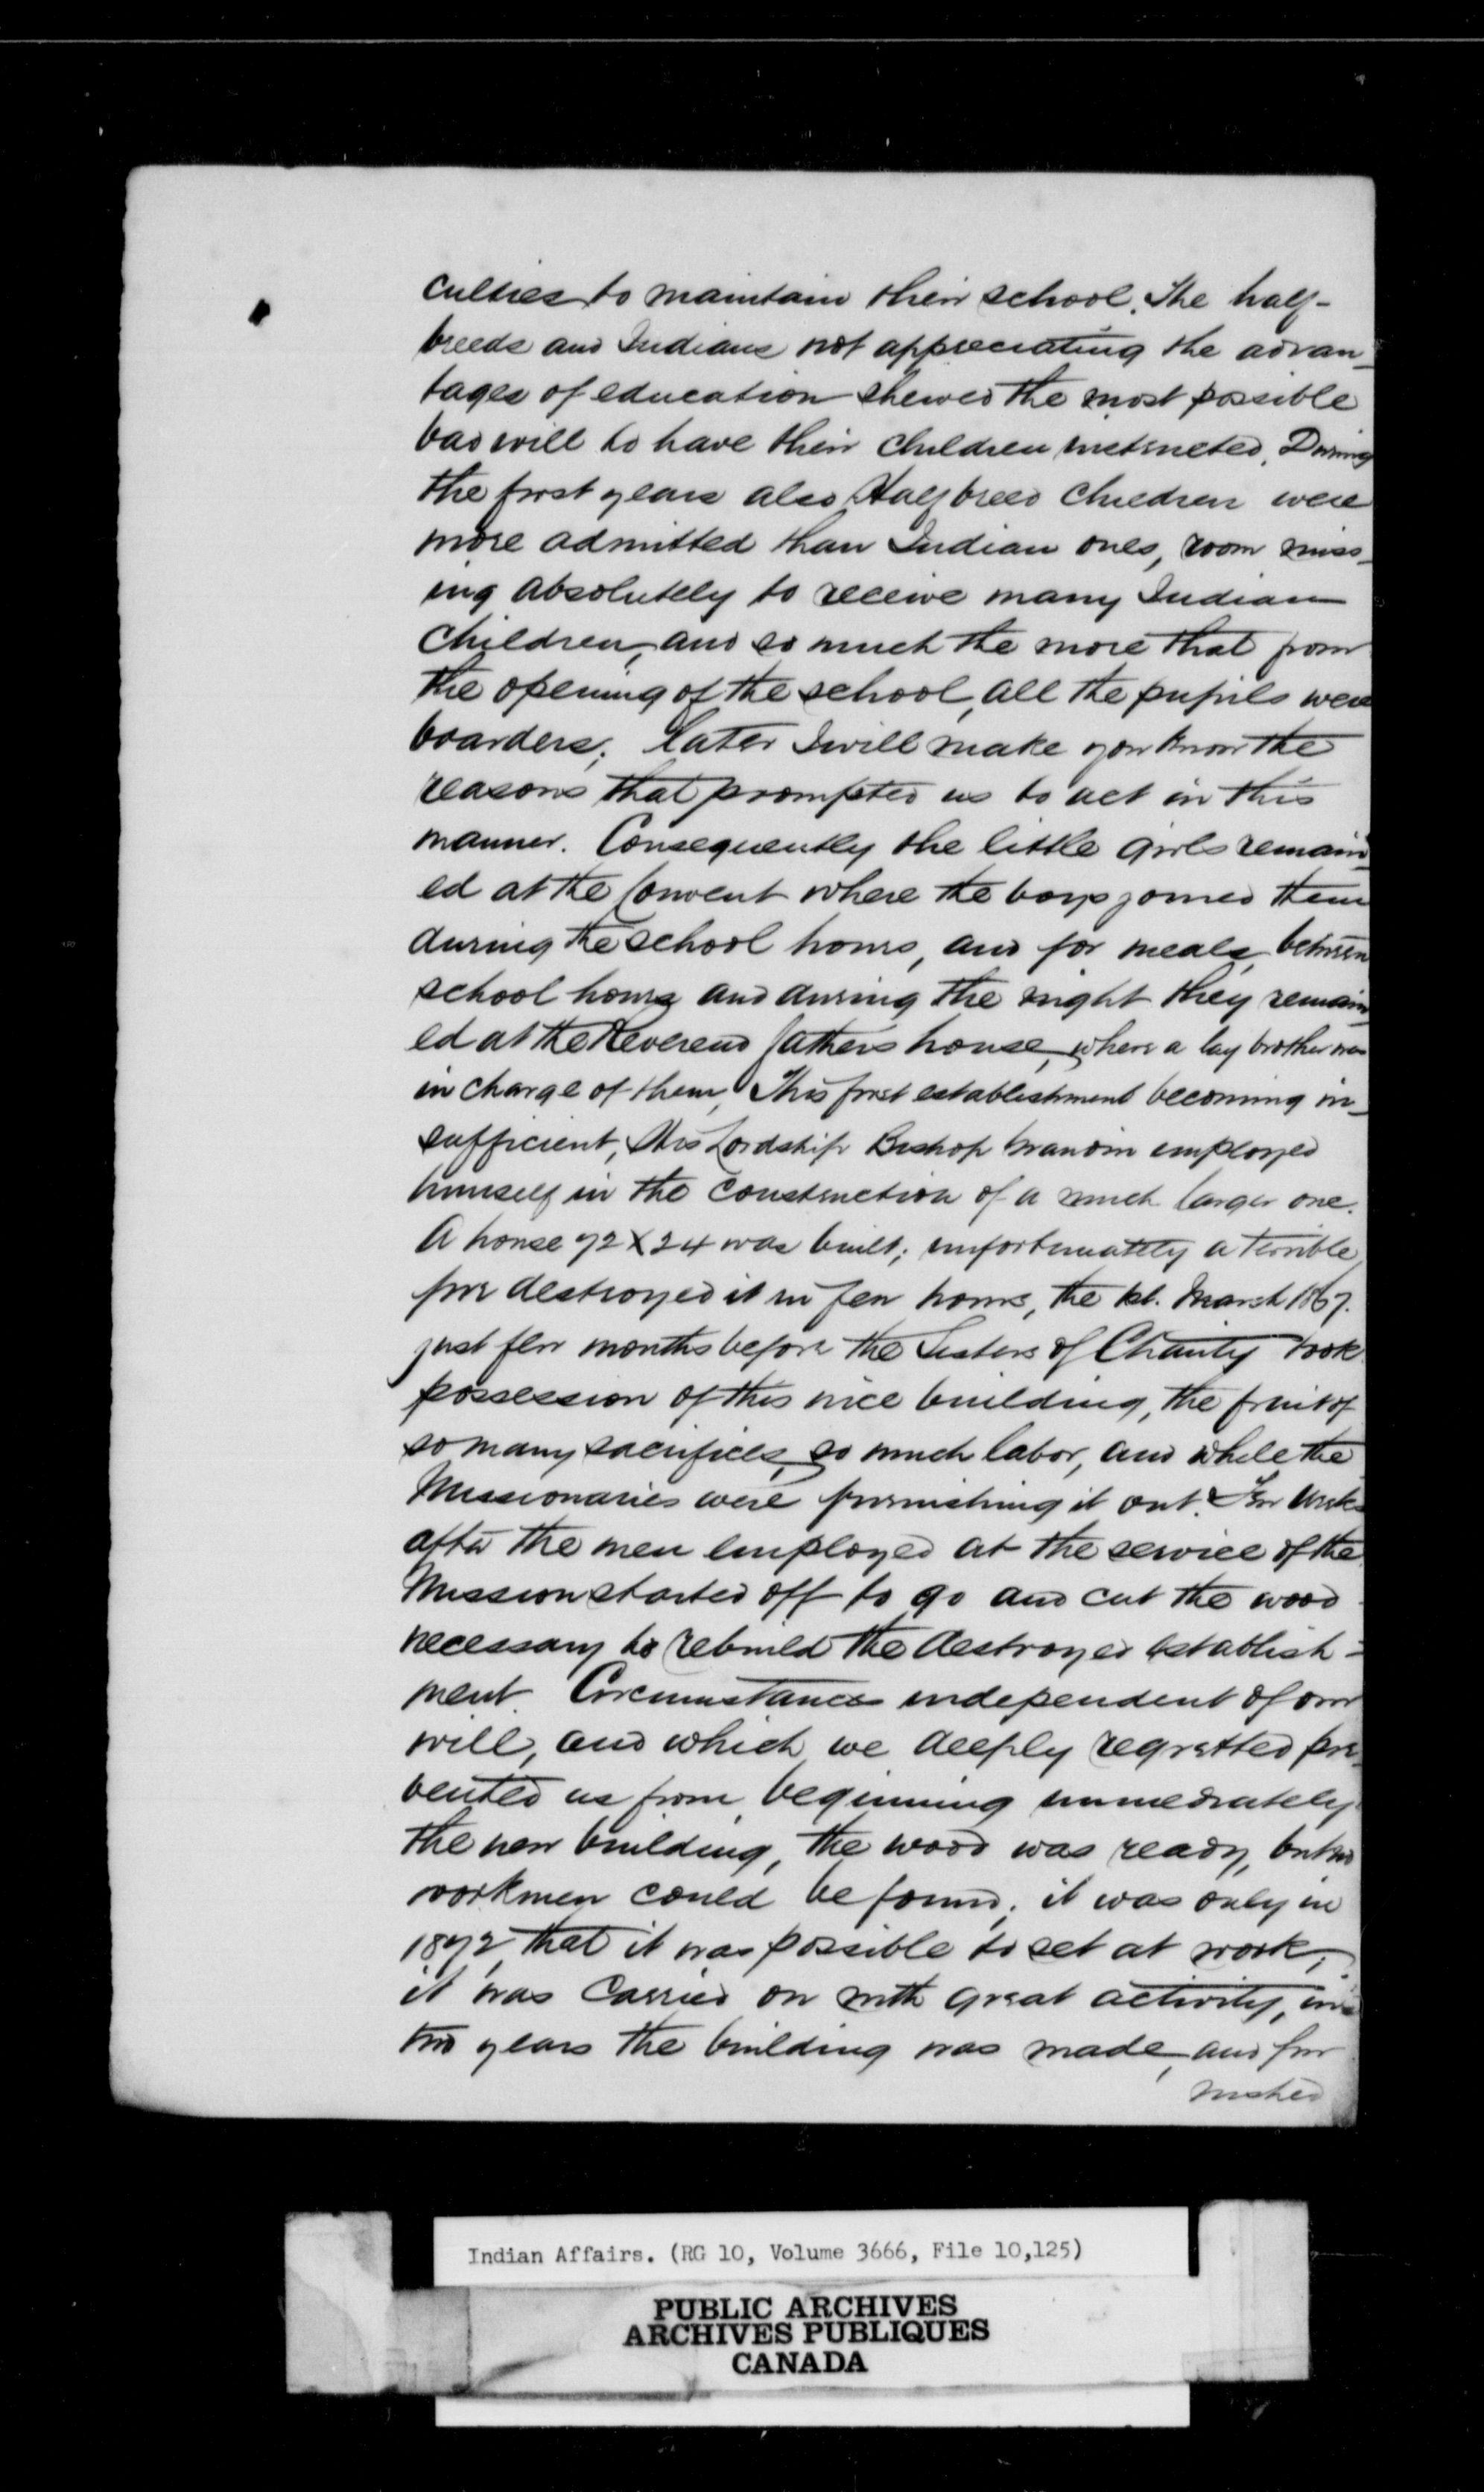 culties to maintain their school. The half-
breeds and Indians not appreciating the advan-
tages of education shewed the most possible
bad will to have their children instructed. During
the first years also Half breed children were
more admitted than Indian ones, room miss-
ing absolutely to receive many Indian
children, and so much the more that from
the opening of the school, all the pupils were
boarders; later I will make you know the
reasons that prompted us to act in this
manner. Consequently the little girls remain-
ed at the Convent where the boys joined them
during the school hours, and for meals, between
school hours and during the night they remain-
ed at the Reverend fathers house, where a lay brother was
in charge of them, This first establishment becoming in-
sufficient, His Lordship Bishop Grandin employed
himself in the construction of a much larger one.
A house 72 X 24 was built; unfortunately a terrible
fire destroyed it in few hours, the March 1867.
just few months before the Sisters of Charity took
possession of this nice building, the fruit of
so many sacrifices, so much labor, and while the
Missionaries were furnishing it out. Few weeks
after the men employed at the service of the
Mission started off to go and cut the wood
necessary to rebuild the destroyed establish-
ment. Circumstances independent of our
will, and which we deeply regretted pre-
vented us from beginning immediately
the new building, the wood was ready, but no
workmen could be found; it was only in
1872, that it was possible to set at work;
it was carried on with great activity, in
two years the building was made, and fur
nished
Indian Affairs. (RG 10, Volume 3666, File 10,125)
PUBLIC ARCHIVES
ARCHIVES PUBLIQUES
CANADA